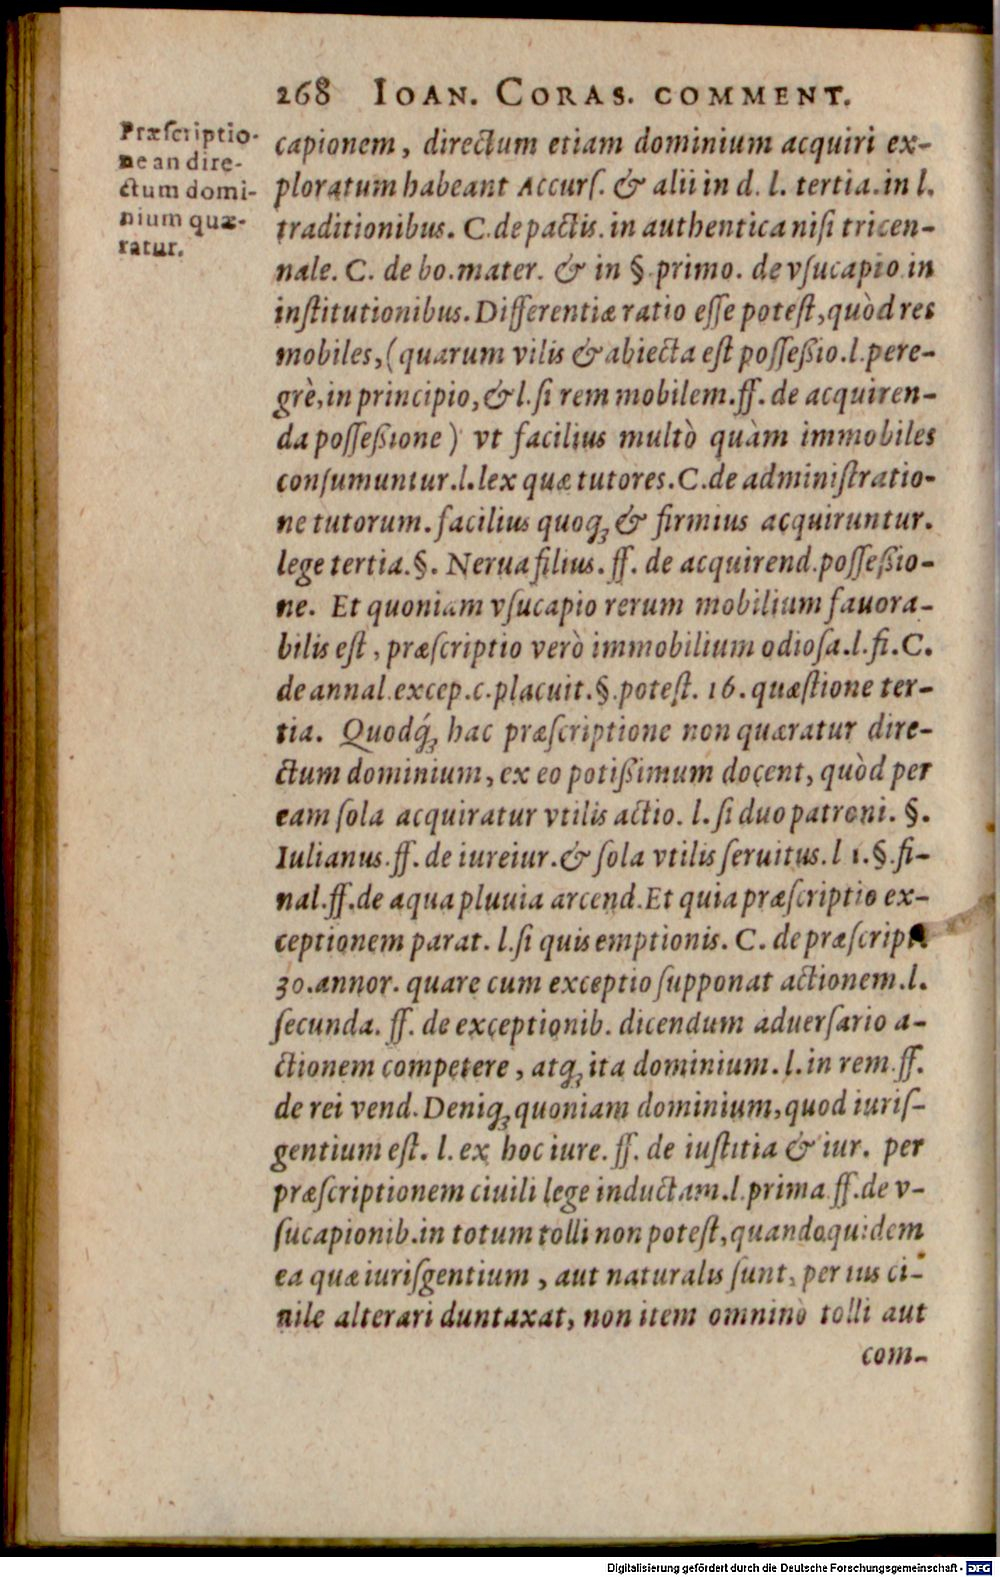 268 IOAN. CORAS. COMMENT.
Præſcriptio-
ne an dire-
ctum domi-
nium quæ-
ratur.
capionem, directum etiam dominium acquiri ex-
ploratum habeant Accurſ. & alii in d. l. tertia. in l.
traditionibus. C. de pactis. in authentica niſi tricen-
nale. C. de bo. mater. & in § primo. de vſucapio in
inſtitutionibus. Differentiæ ratio eſſe poteſt, quòd res
mobiles, (quarum vilis & abiecta eſt poſſeßio. l. pere-
grè, in principio, & l. ſi rem mobilem. ff. de acquiren-
da poſſeßione) vt facilius multò quàm immobiles
conſumuntur. l. lex quæ tutores. C. de adminiſtratio-
ne tutorum. facilius quoq; & firmius acquiruntur.
lege tertia. §. Nerua filius. ff. de acquirend. poſſeßio-
ne. Et quoniam vſucapio rerum mobilium fauora-
bilis eſt, præſcriptio verò immobilium odioſa. l. fi. C.
de annal. excep. c. placuit. §. poteſt. 16. quæſtione ter-
tia. Quodq́; hac præſcriptione non quæratur dire-
ctum dominium, ex eo potißimum docent, quòd per
eam ſola acquiratur vtilis actio. l. ſi duo patroni. §.
Iulianus. ff. de iureiur. & ſola vtilis ſeruitus. l 1. §. fi-
nal. ff. de aqua pluuia arcend. Et quia præſcriptio ex-
ceptionem parat. l. ſi quis emptionis. C. de præſcript.
30. annor. quare cum exceptio ſupponat actionem. l.
ſecunda. ff. de exceptionib. dicendum aduerſario a-
ctionem competere, atq; ita dominium. l. in rem. ff.
de rei vend. Deniq; quoniam dominium, quod iuriſ-
gentium eſt. l. ex hoc iure. ff. de iuſtitia & iur. per
præſcriptionem ciuili lege inductam. l. prima ff. de v-
ſucapionib. in totum tolli non poteſt, quandoquidem
ea quæ iuriſgentium, aut naturalis ſunt, per ius ci-
uile alterari duntaxat, non item omninò tolli aut
com-
Digitalisierung gefördert durch die Deutsche Forschungsgemeinschaft - DFG